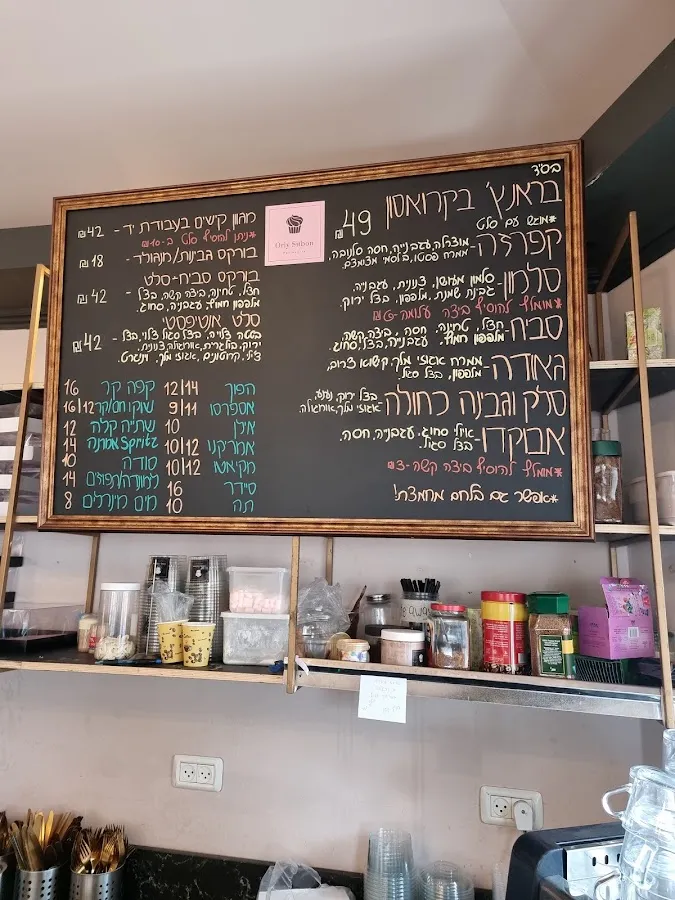 בס״ד
בראנץ' בקרואסון
49 ₪
*מוגש עם סלט
קפרזה- מוצרלה, עגבנייה, חסה סלנובה,
ממרח פסטו, בלסמי מצומצם.
סלמון- סלמון מעושן, צנונית, עגבניה,
גבינת שמנת, מלפפון, בצל ירוק.
*מומלץ להוסיף ביצה עלומה-6₪
סביח- חציל, טחינה, חסה, ביצה קשה,
מלפפון חמוץ, עגבנייה, בצל, סחוג.
גאודה- ממרח אגוזי מלך, קשואי צרוב,
מלפפון, בצל סגול.
סלק וגבינה כחולה- בצל ירוק, נענע,
אגוזי מלך, אורוגולה.
אבוקדו- איולי סחוג, עגבניה, חסה,
בצל סגול.
*מומלץ להוסיף ביצה קשה-3₪
*אפשר גם בלחם מחמצת!
Orly Sabon
מגוון קישים בעבודת יד - 42 ₪
*ניתן להוסיף סלט ב-10₪
בורקס גבינות/מנגולד- 18 ₪
בורקס סביח+סלט
חציל, טחינה, ביצה קשה, בצל, 42 ₪
מלפפון חמוץ, עגבניה, סחוג.
סלט אנטיפסטי
בטטה צלוייה, בצל סגול צלוי, בצל- 42 ₪
ירוק, בולגרית, אורוגולה, צנונית,
צ'ילי, קרוטונים, אגוזי מלך, וינגרט.
הפוך 12|14
אספרסו 9|11
אילן 10
אמריקנו 10|12
מקיאטו 10|12
סיידר 16
תה 10
קפה קר 16
שוקו חם/קר 12|16
שתייה קלה 12
Spritz אמתנה 14
סודה 10
לימונדה/תפוזים 14
מים מינרלים 8
away